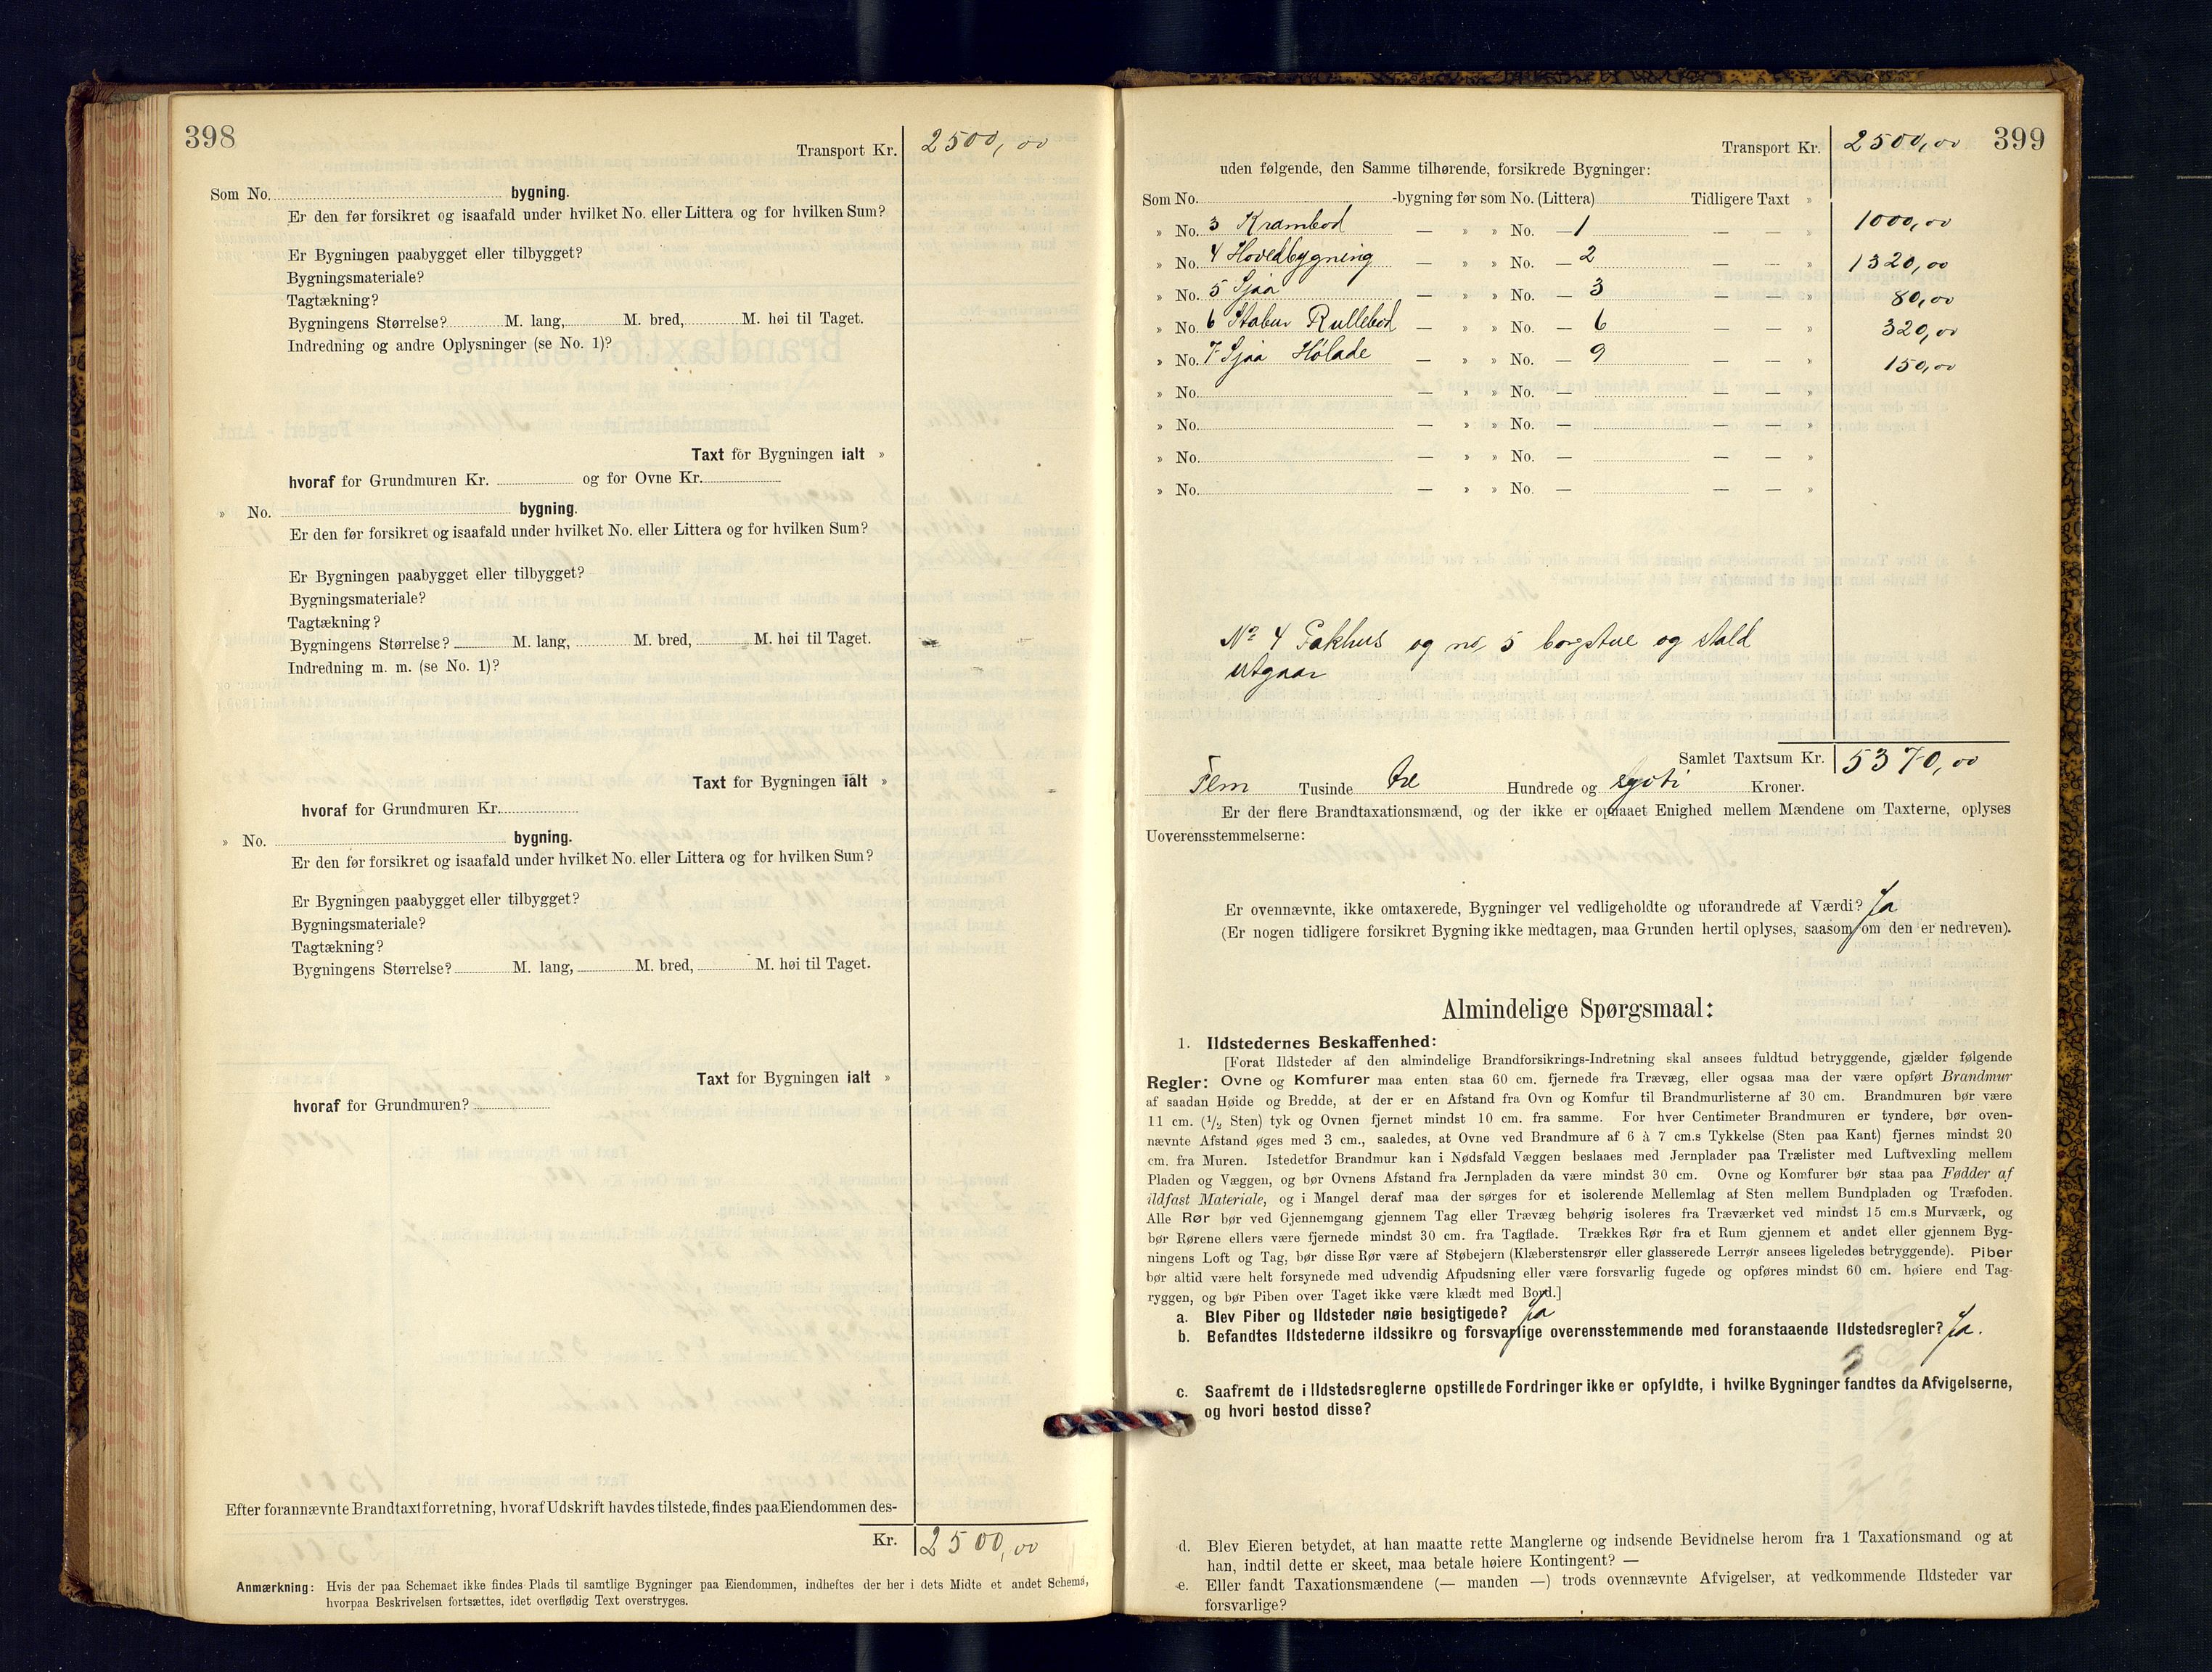 398
Transport Kr. 2500,00
Som No. bygning.
Er den før forsikret og isaafald under hvilket No. eller Littera og for hvilken Sum?
Er Bygningen paabygget eller tilbygget?
Bygningsmateriale?
Tagtækning?
Bygningens Størrelse? M. lang, M. bred, M. høi til Taget.
Indredning og andre Oplysninger (se No. 1)?
Taxt for Bygningen ialt »
hvoraf for Grundmuren Kr. og for Ovne Kr.
» No. bygning.
Er den før forsikret og isaafald under hvilket No. eller Littera og for hvilken Sum?
Er Bygningen paabygget eller tilbygget?
Bygningsmateriale?
Tagtækning?
Bygningens Størrelse? M. lang, M. bred, M. høi til Taget.
Indredning m. m. (se No. 1)?
Taxt for Bygningen ialt »
hvoraf for Grundmuren Kr.
» No. bygning.
Er den før forsikret og isaafald under hvilket No. eller Littera og for hvilken Sum?
Er Bygningen paabygget eller tilbygget?
Bygningsmateriale?
Tagtækning?
Bygningens Størrelse? M. lang, M. bred, M. høi til Taget.
Taxt for Bygningen ialt »
hvoraf for Grundmuren?
Efter forannævnte Brandtaxtforretning, hvoraf Udskrift havdes tilstede, findes paa Eiendommen des-
Kr. 2500,00
Anmærkning: Hvis der paa Schemaet ikke findes Plads til samtlige Bygninger paa Eiendommen, indheftes der her i dets Midte et andet Schema,
hvorpaa Beskrivelsen fortsættes, idet overflødig Text overstryges.
399
Transport Kr. 2500,00
uden følgende, den Samme tilhørende, forsikrede Bygninger:
Som No. -bygning før som No. (Littera) Tidligere Taxt »
» No. 3 Krambod — » » No. — 1 — — » 1000,00
» No. 4 Hovedbygning — » » No. — 2 — — » 1320,00
» No. 5 Sjaa — » » No. — 3 — — » 80,00
» No. 6 Stabur Rullebod — » » No. — 6 — — » 320,00
» No. 7 Sjaa Hølade — » » No. — 9 — — » 150,00
» No. — » » No. — — — »
» No. — » » No. — — — »
» No. — » » No. — — — »
» No. — » » No. — — — »
No 4 Pakhus og no 5 borgstue og stald
utgaar
Samlet Taxtsum Kr. 5370,00
Fem Tusinde tre Hundrede og sytti Kroner.
Er der flere Brandtaxationsmænd, og der ikke er opnaaet Enighed mellem Mændene om Taxterne, oplyses
Uoverensstemmelserne:
Er ovennævnte, ikke omtaxerede, Bygninger vel vedligeholdte og uforandrede af Værdi? Ja
(Er nogen tidligere forsikret Bygning ikke medtagen, maa Grunden hertil oplyses, saasom om den er nedreven).
Almindelige Spørgsmaal:
1. Ildstedernes Beskaffenhed:
[Forat Ildsteder af den almindelige Brandforsikrings-Indretning skal ansees fuldtud betryggende, gjælder følgende
Regler: Ovne og Komfurer maa enten staa 60 cm. fjernede fra Trævæg, eller ogsaa maa der være opført Brandmur
af saadan Høide og Bredde, at der er en Afstand fra Ovn og Komfur til Brandmurlisterne af 30 cm. Brandmuren bør være
11 cm. (1/2 Sten) tyk og Ovnen fjernet mindst 10 cm. fra samme. For hver Centimeter Brandmuren er tyndere, bør oven-
nævnte Afstand øges med 3 cm., saaledes, at Ovne ved Brandmure af 6 à 7 cm.s Tykkelse (Sten paa Kant) fjernes mindst 20
cm. fra Muren. Istedetfor Brandmur kan i Nødsfald Væggen beslaaes med Jernplader paa Trælister med Luftvexling mellem
Pladen og Væggen, og bør Ovnens Afstand fra Jernpladen da være mindst 30 cm. Ovne og Komfurer bør staa paa Fødder af
ildfast Materiale, og i Mangel deraf maa der sørges for et isolerende Mellemlag af Sten mellem Bundpladen og Træfoden.
Alle Rør bør ved Gjennemgang gjennem Tag eller Trævæg behørig isoleres fra Træværket ved mindst 15 cm.s Murværk, og
bør Rørene ellers være fjernede mindst 30 cm. fra Tagflade. Trækkes Rør fra et Rum gjennem et andet eller gjennem Byg-
ningens Loft og Tag, bør disse Rør være af Støbejern (Klæberstensrør eller glasserede Lerrør ansees ligeledes betryggende). Piber
bør altid være helt forsynede med udvendig Afpudsning eller være forsvarlig fugede og opføres mindst 60 cm. høiere end Tag-
ryggen, og bør Piben over Taget ikke være klædt med Bord.]
a. Blev Piber og Ildsteder nøie besigtigede? Ja
b. Befandtes Ildstederne ildssikre og forsvarlige overensstemmende med foranstaaende Ildstedsregler? Ja.
c. Saafremt de i Ildstedsreglerne opstillede Fordringer ikke er opfyldte, i hvilke Bygninger fandtes da Afvigelserne,
og hvori bestod disse?
d. Blev Eieren betydet, at han maatte rette Manglerne og indsende Bevidnelse herom fra 1 Taxationsmand og at
han, indtil dette er skeet, maa betale høiere Kontingent? —
e. Eller fandt Taxationsmændene (— manden —) trods ovennævnte Afvigelser, at vedkommende Ildsteder var
forsvarlige?